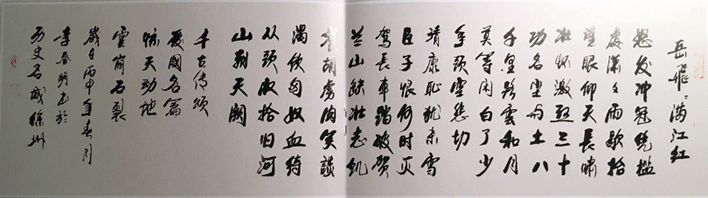 岳飛：满江红
怒发冲冠凭槛
处潇々雨歇抬
望眼仰天長啸
壮怀激烈三十
功名尘与土八
千里路雲和月
莫等闲白了少
年头空悲切
靖康耻犹未雪
臣子恨何时灭
驾長車踏破贺
兰山缺壮志饥
餐胡虏肉笑談
渴饮匈奴血待
从头收拾旧河
山朝天阙
千古传颂
爱国名篇
惊天动地
雲崩石裂
岁在丙申年春月
李春明书於
历史名城徐州